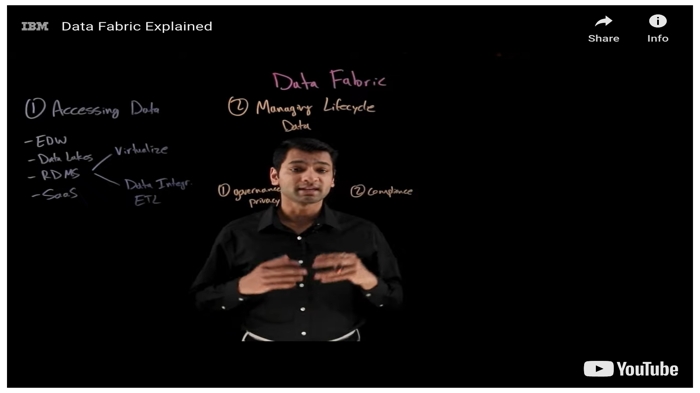 IBM Data Fabric Explained
Share
Info
Data Fabric
① Accessing Data
- EDW
- Data Lakes
- RDMS
- SaaS
Virtualize
Data Integr.
ETL
② Managing Lifecycle
Data
① governance
privacy
② compliance
YouTube